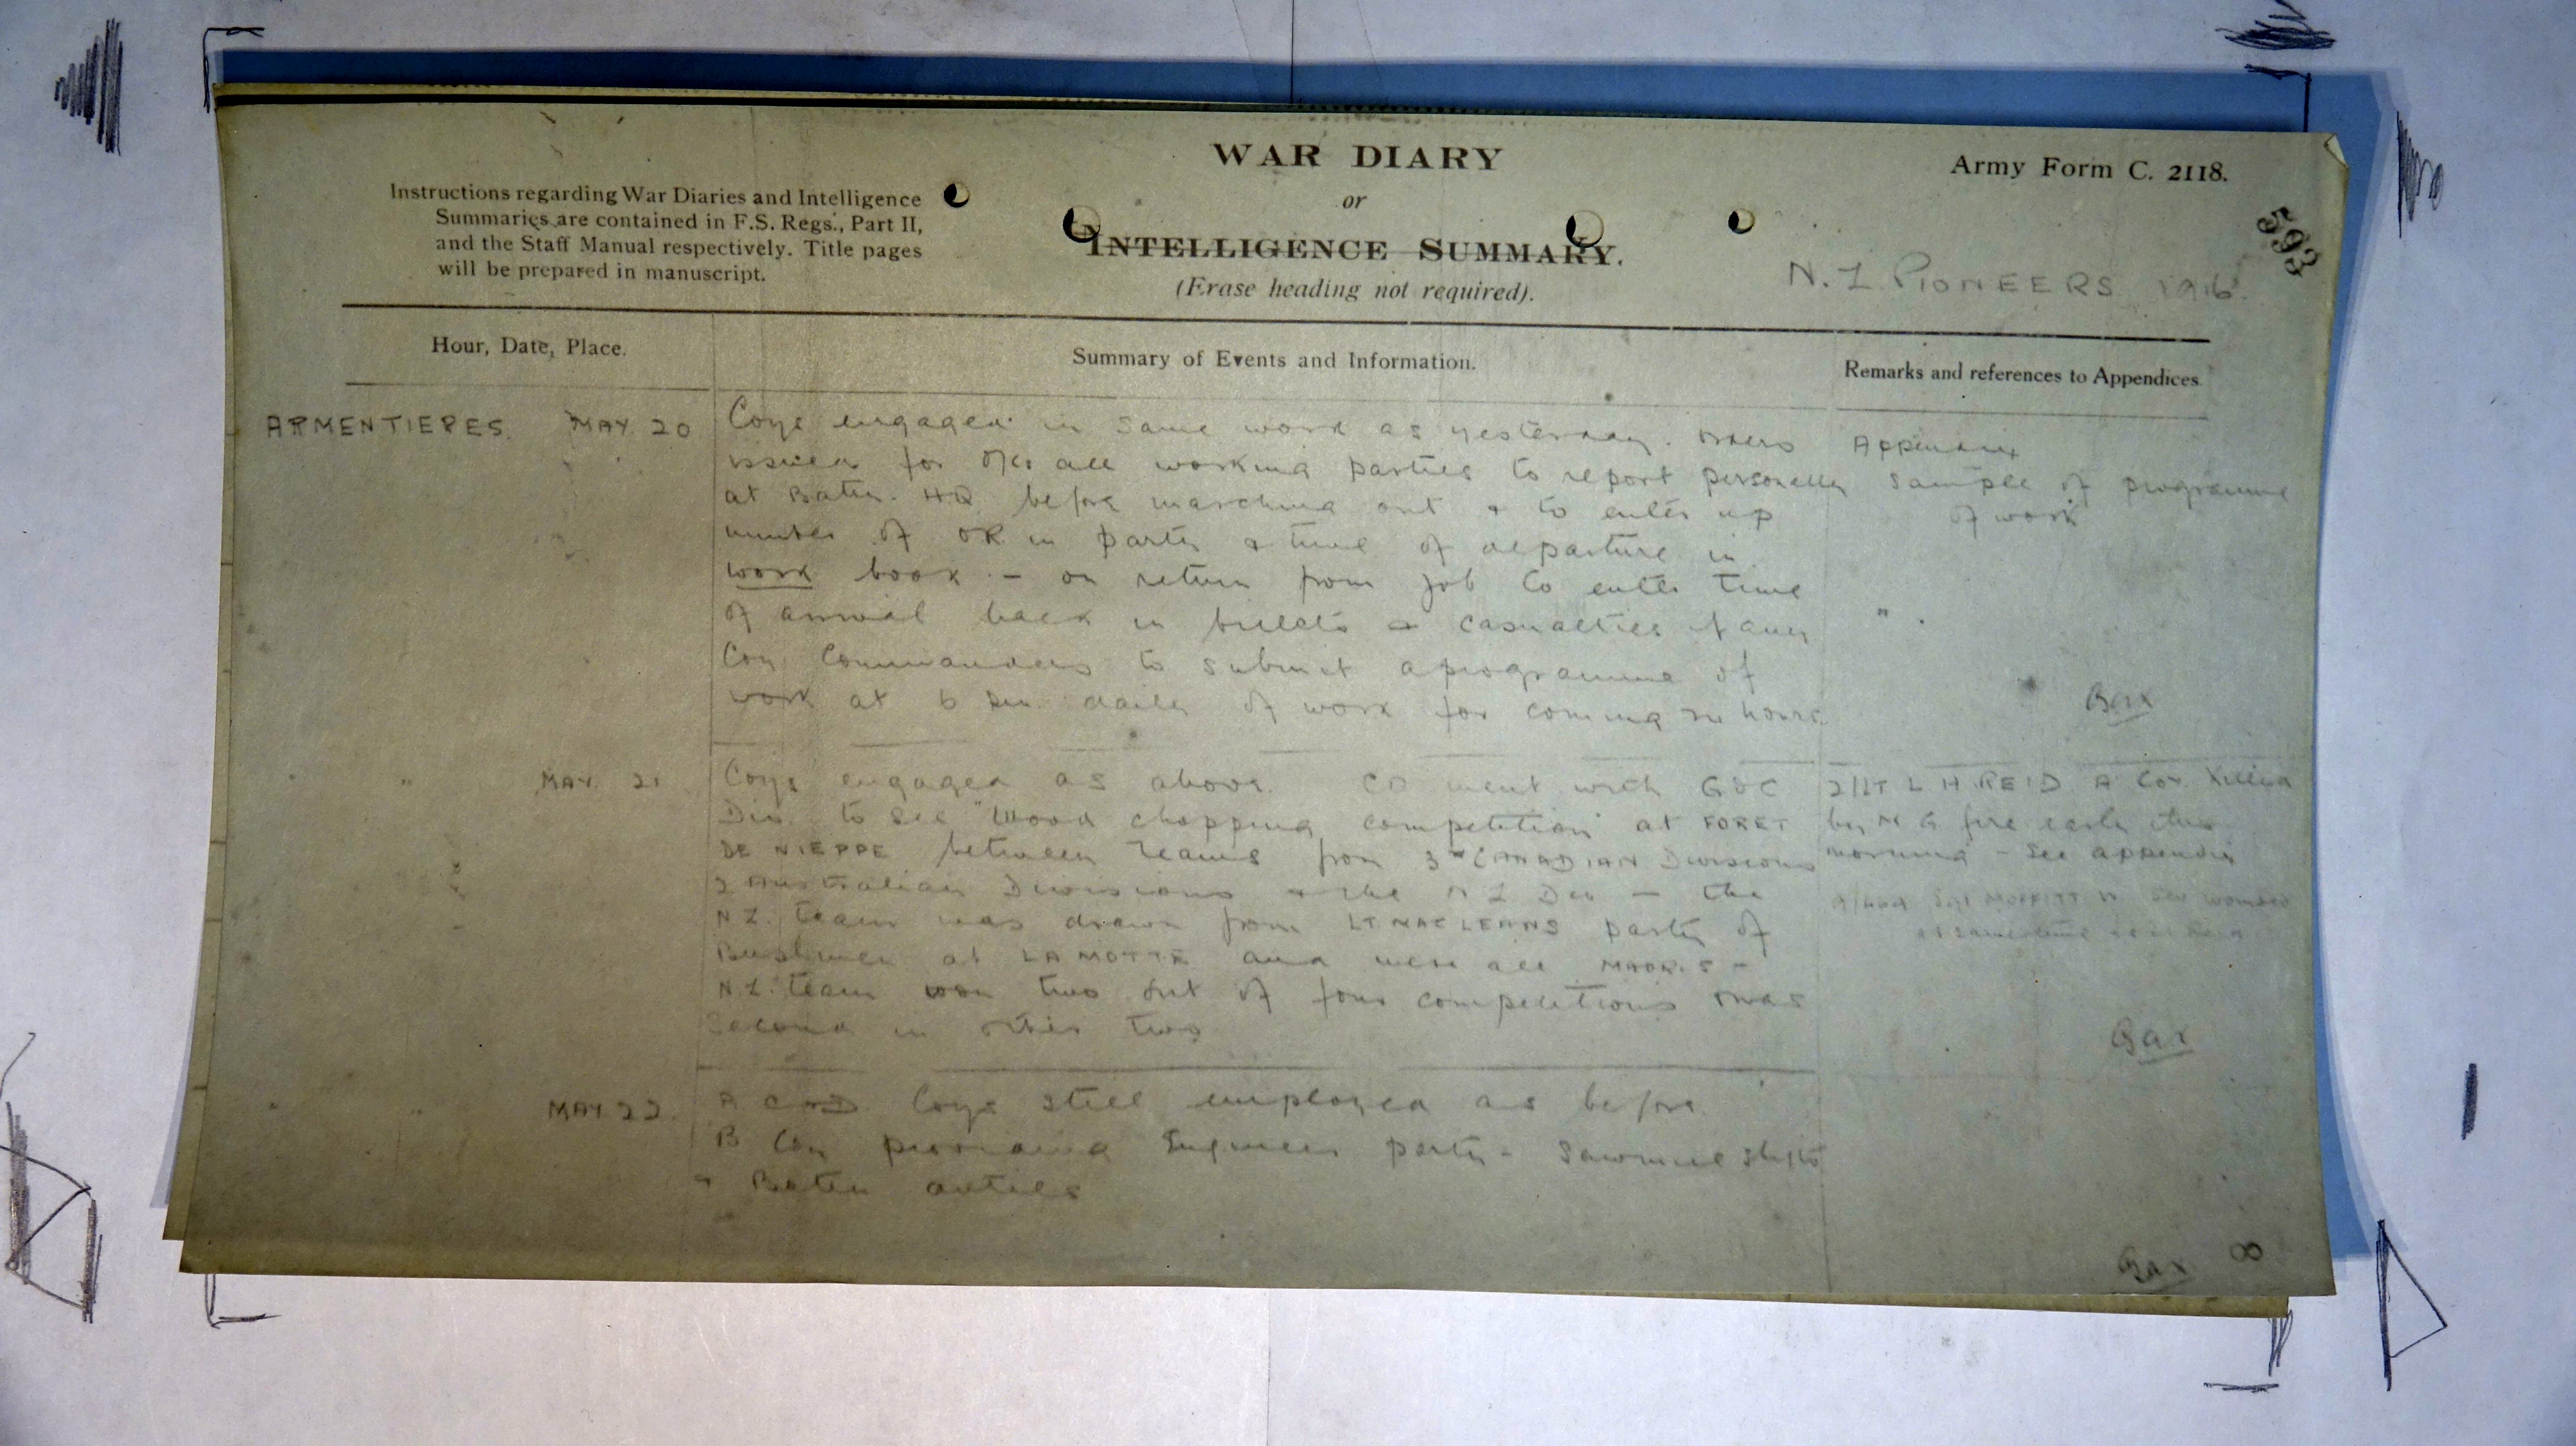 WAR DIARY
or
INTELLIGENCE SUMMARY.
(Erase heading not required).
Instructions regarding War Diaries and Intelligence
Summaries are contained in F.S. Regs., Part II,
and the Staff Manual respectively. Title pages
will be prepared in manuscript.
Army Form C. 2118.
593
N. Z PIONEERS 1916.
Hour, Date, Place.
Summary of Events and Information.
Remarks and references to Appendices.
ARMENTIERES. MAY. 20
Coys engaged in same work as yesterday. Orders
issued for O/Cs all working parties to report personally
at Battn. HQ before marching out & to enter up
number of OR in party & time of departure in
work book - on return from job to enter time
of arrival back in billets & casualties if any
Coy Commanders to submit a programme of
work at 6 pm daily of work for coming 24 hours.
Appendix
Sample of programme
of work
" .
Bax
" " MAY. 21
Coys engaged as above. CO went with GOC
Div. to see "Wood chopping competition" at FORET
DE NIEPPE between teams from 3rd CANADIAN Divisions
2 Australian Divisions & the N Z Div - the
N Z. team was drawn from LT. MACLEANS party of
Bushmen at LA MOTTE and were all MAORIS -
N.Z. team won two out of four competitions & was
second in other two
2/LT L H. REID A Coy. Killed
by M G fire early this
morning - See appendix
Sgt MOFFITT W wounded
at same time as
Bax
" " MAY 22.
A C & D Coys still employed as before
B Coy providing Engineer party - Sawmill shifts
& Battn duties
Bax
8